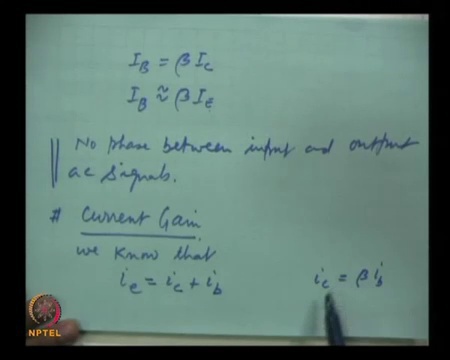 I_B = β I_C
I_B ≈ β I_E
No phase between input and output
ac signals.
# Current Gain
we know that
i_e = i_c + i_b
i_c = β i_b
NPTEL